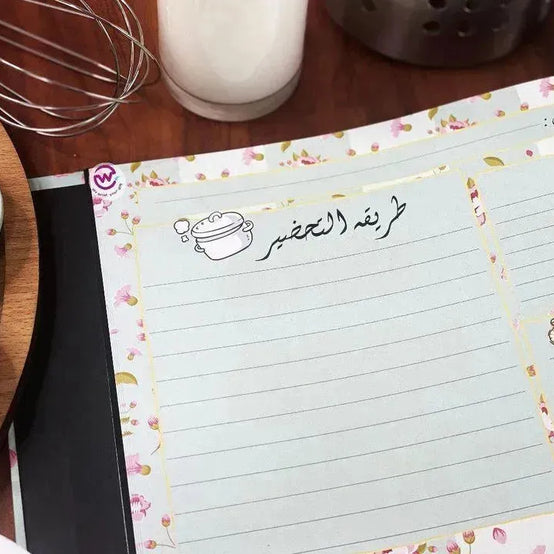 طريقه التحضير